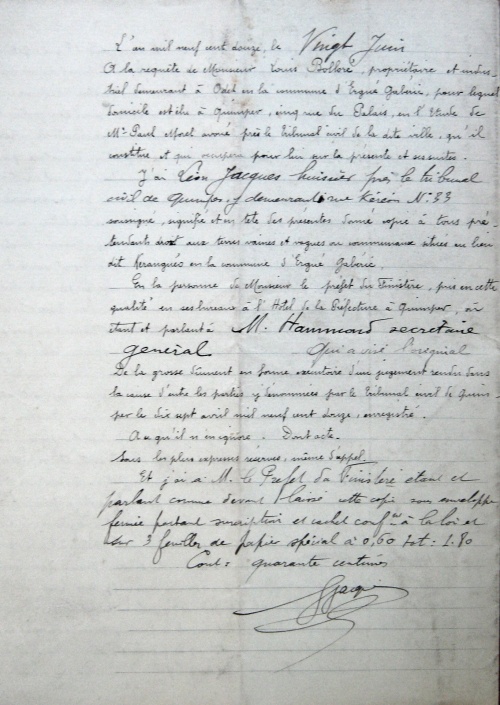 L'an mil neuf cent douze, le Vingt Juin
A la requête de Monsieur Louis Bolloré, propriétaire et indus
triel demeurant à Odet en la commune d'Ergué Gabéric, pour lequel
domicile est élu à Quimper, cinq rue du Palais, en l'Etude de
Me Paul Morel avoué près le Tribunal civil de la dite ville, qu'il
constitue et qui occupera pour lui sur la présente et ses suites.
J'ai Léon Jacques huissier près le tribunal
civil de Quimper, y demeurant rue Kéréon No 23
soussigné, signifié et en tête des présentes donné copie à tous pré-
tendants droit aux terres vaines et vagues ou communaux situées au lieu
dit Keranguéo en la commune d'Ergué Gabéric,
En la personne de Monsieur le préfet du Finistère, pris en cette
qualité en ses bureaux à l'Hôtel de la Préfecture à Quimper, où
étant et parlant à M. Hammond secrétaire
général qui a visé l'original
De la grosse dûment en forme exécutoire d'un jugement rendu dans
la cause d'entre les parties y dénommées par le Tribunal civil de Quim-
per le dix sept avril mil neuf cent douze, enregistré.
A ce qu'il n'en ignore. Dont acte.
Sous les plus expresses réserves, même d'appel.
Et j'ai à M. le Préfet du Finistère étant et
parlant comme devant laissé cette copie sous enveloppe
fermée portant suscription et cachet conf. à la loi et
sur 3 feuilles de papier spécial à 0,60 tot: 1.80
Cout: quarante centimes
Jacques